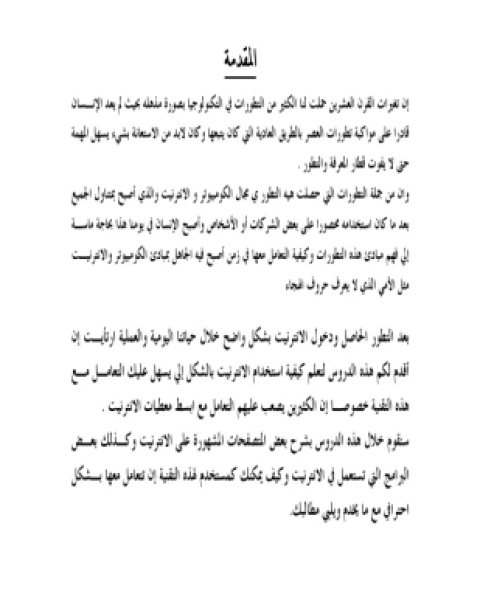 المقدمة
إن تغيرات القرن العشرين حملت لنا الكثير من التطورات في التكنولوجيا بصورة مذهله بحيث لم يعد الإنسان
قادرا على مواكبة تطورات العصر بالطريق العادية التي كان يتبعها وكان لابد من الاستعانة بشيء يسهل المهمة
حتى لا يفوت قطار المعرفة والتطور .
وان من جملة التطورات التي حصلت هيه التطور ي مجال الكومبيوتر و الانترنيت والذي أصبح بمتناول الجميع
بعد ما كان استخدامه محصورا على بعض الشركات أو الأشخاص وأصبح الإنسان في يومنا هذا بحاجة ماسة
إلي فهم مبادئ هذه التطورات وكيفية التعامل معها في زمن أصبح فيه الجاهل بمبادئ الكومبيوتر والانترنيت
مثل الأمي الذي لا يعرف حروف الهجاء
بعد التطور الحاصل ودخول الانترنيت بشكل واضح خلال حياتنا اليومية والعملية ارتأيت إن
أقدم لكم هذه الدروس لتعلم كيفية استخدام الانترنيت بالشكل إلي يسهل عليك التعامل مع
هذه التقنية خصوصا إن الكثيرين يصعب عليهم التعامل مع ابسط معطيات الانترنيت .
سنقوم خلال هذه الدروس بشرح بعض المتصفحات المشهورة على الانترنيت وكذلك بعض
البرامج التي تستعمل في الانترنيت وكيف يمكنك كمستخدم لهذه التقنية إن تتعامل معها بشكل
احترافي مع ما يخدم ويلبي مطالبك.